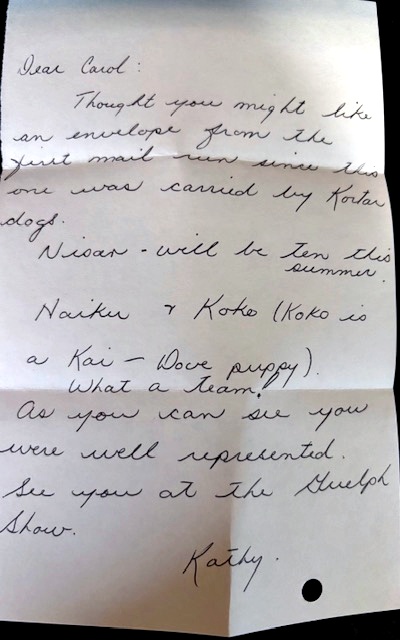 Dear Carol:
Thought you might like
an envelope from the
first mail run since this
one was carried by Kortar
dogs.
Nisan - will be ten this
summer.
Naiku & Koko (Koko is
a Kai - Dove puppy).
What a team!
As you can see you
were well represented.
See you at the Guelph
Show.
Kathy.